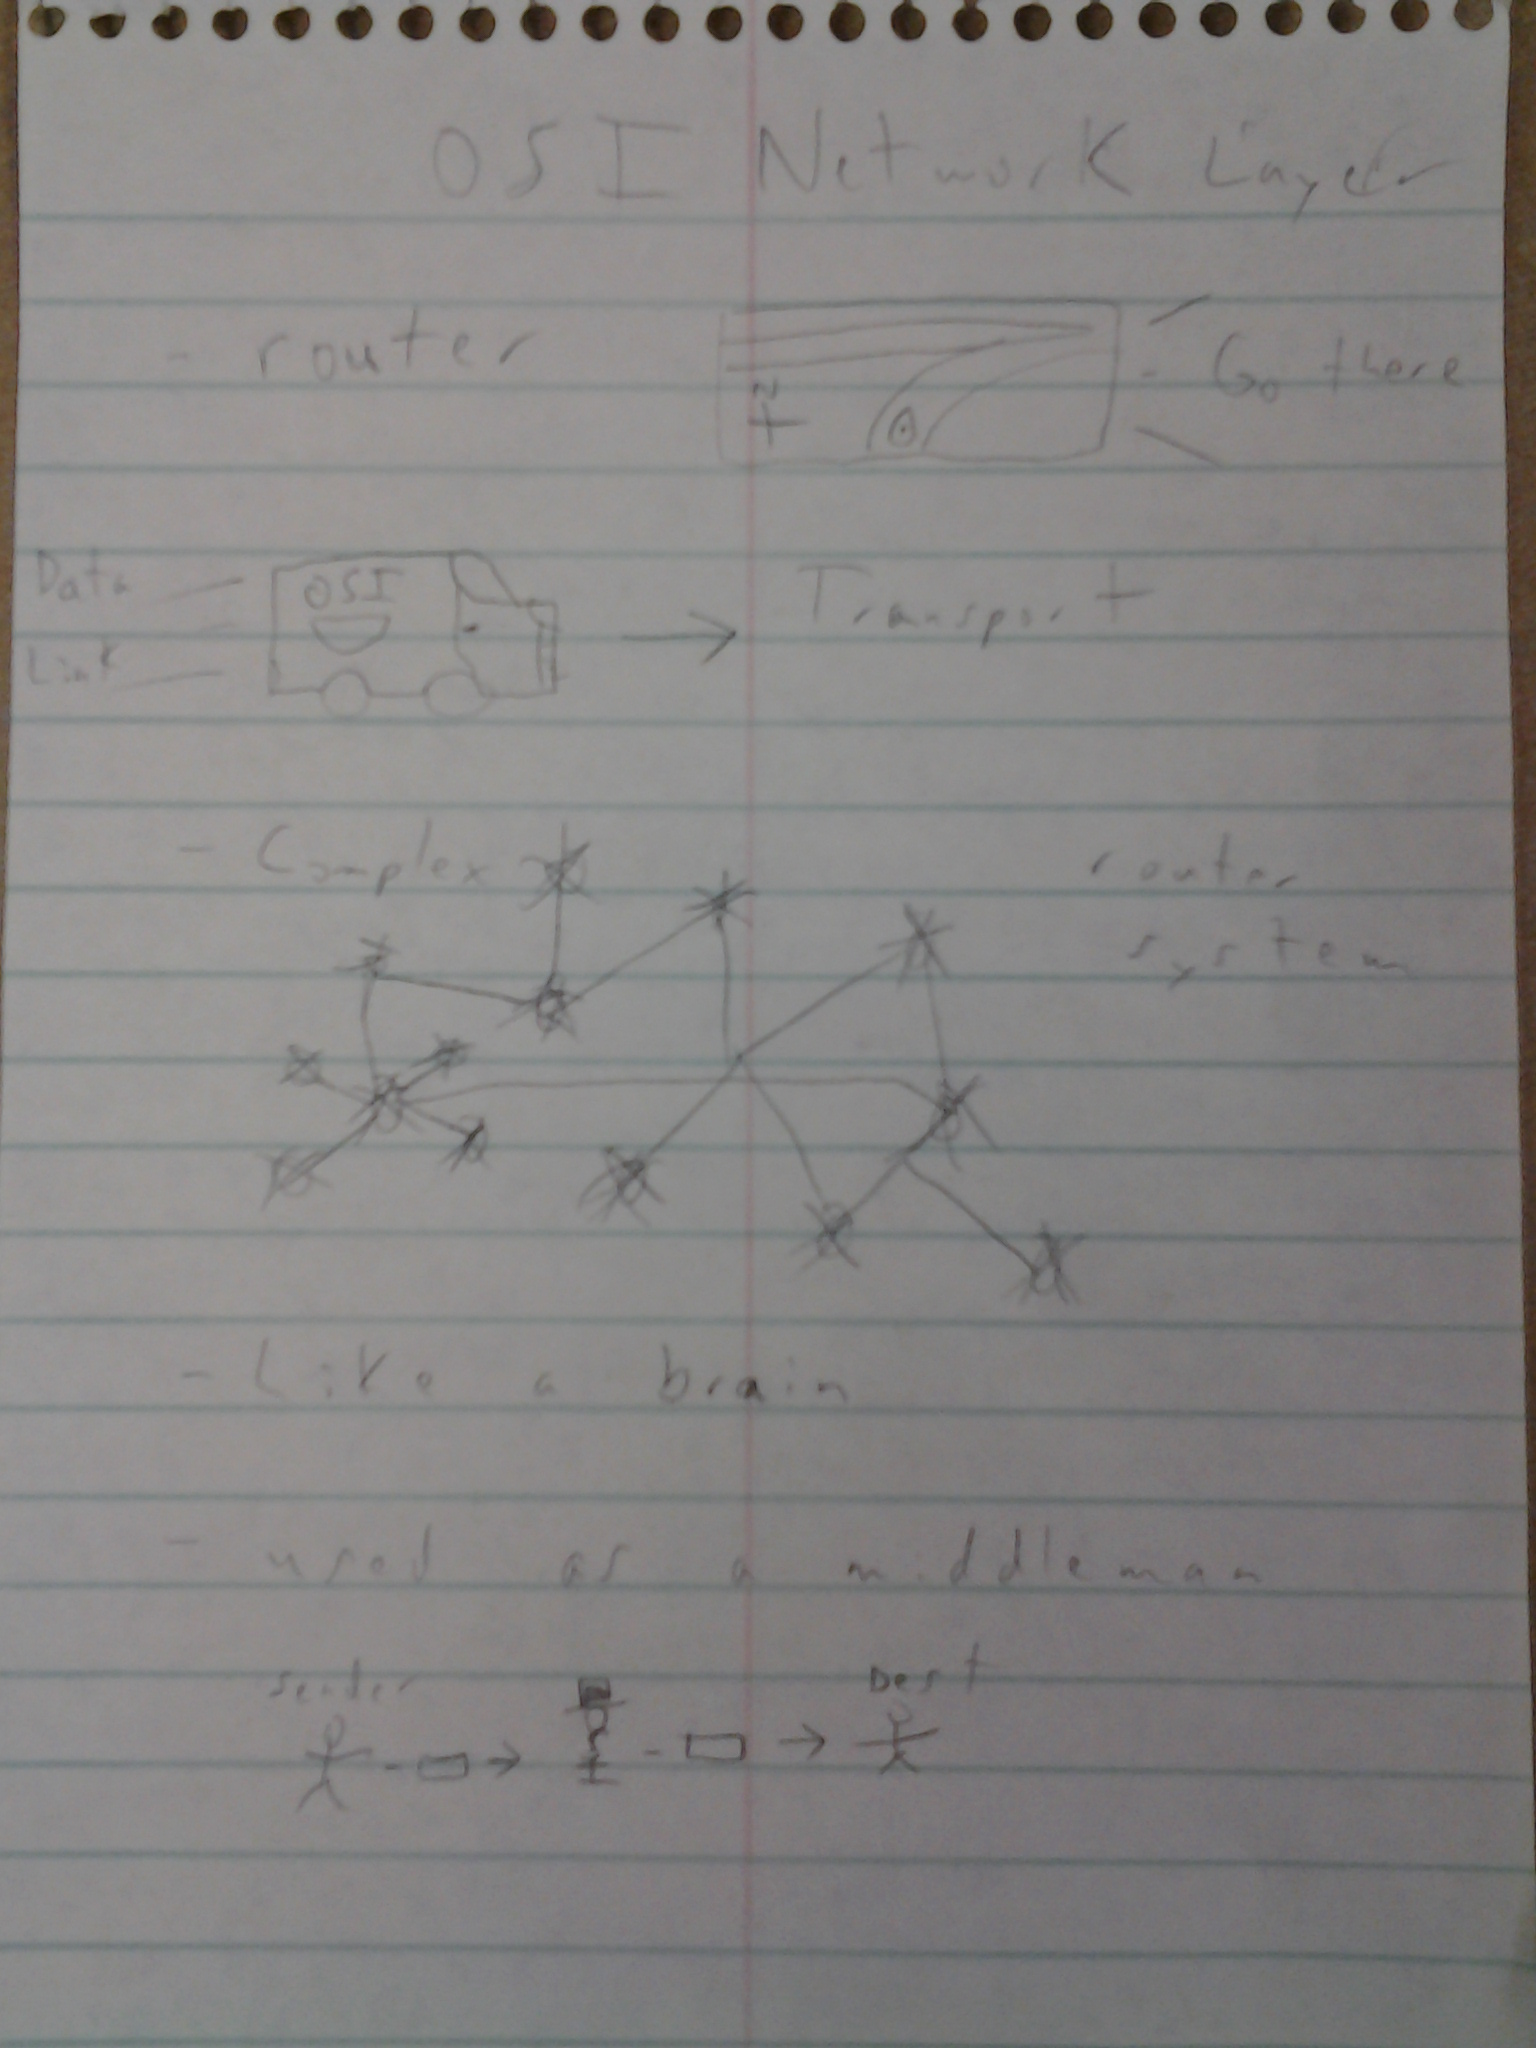 OSI Network Layer
- router
- Go there
N
Data
Link
OSI
Transport
- Complex router
system
- Like a brain
- used as a middleman
sender
Dest